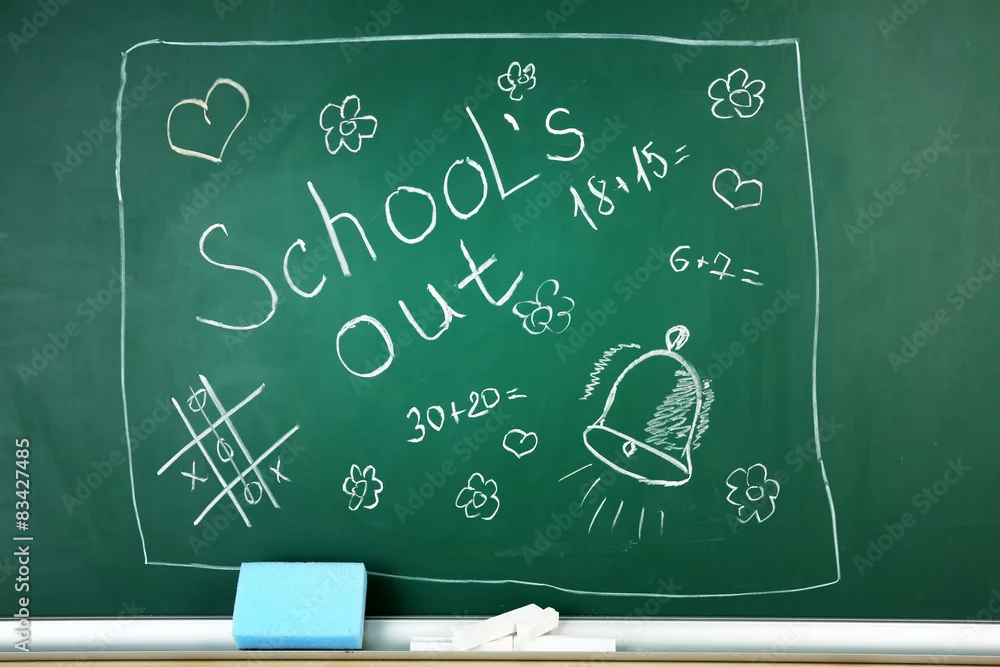 School's
out
18+15=
6+7=
30+20=
X X
Adobe Stock | #83427485